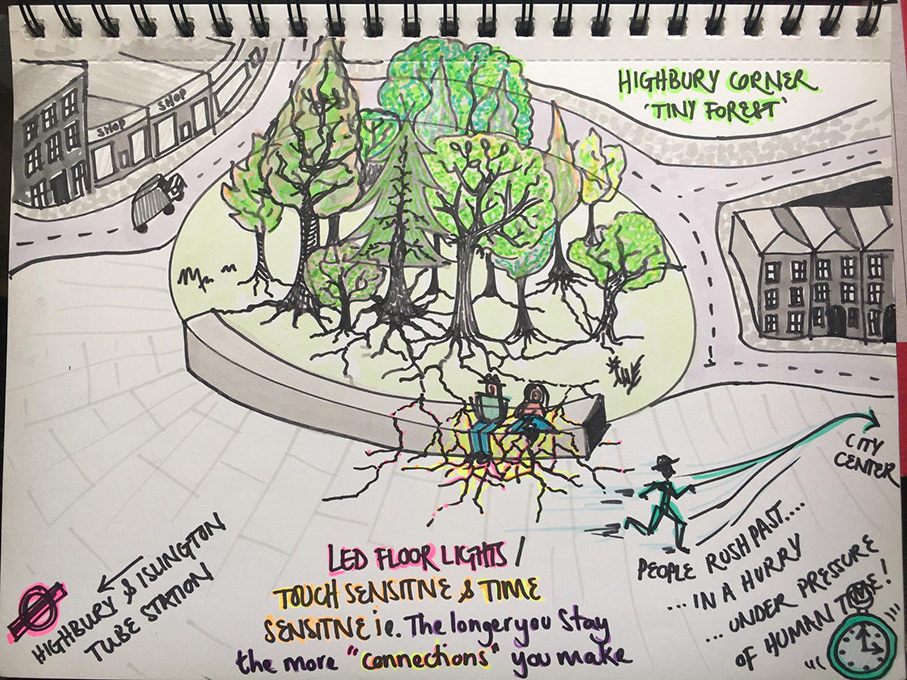 HIGHBURY CORNER
'TINY FOREST'
SHOP
SHOP
CITY
CENTER
PEOPLE RUSH PAST....
...IN A HURRY
... UNDER PRESSURE
OF HUMAN TIME!
HIGHBURY & ISLINGTON
TUBE STATION
LED FLOOR LIGHTS /
TOUCH SENSITIVE & TIME
SENSITIVE ie. The longer you stay
the more "connections" you make